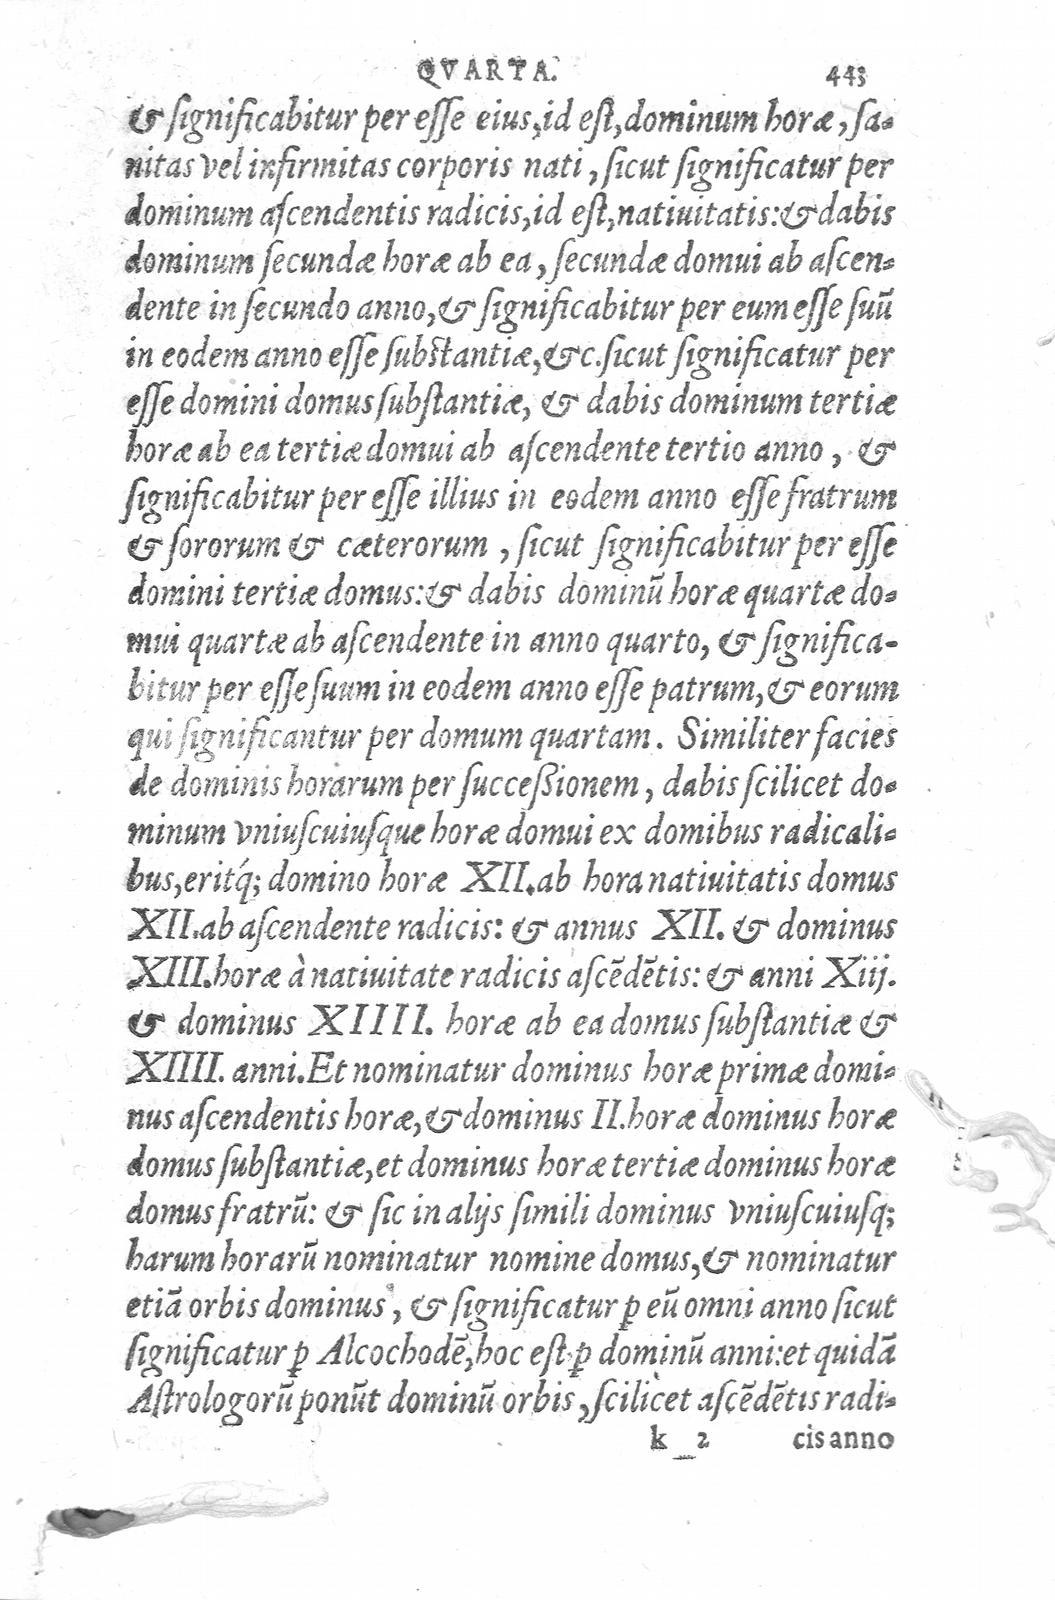 QVARTA. 443
& ſignificabitur per eſſe eius, id eſt, dominum horæ, ſa-
nitas vel infirmitas corporis nati, ſicut ſignificatur per
dominum aſcendentis radicis, id eſt, natiuitatis: & dabis
dominum ſecundæ horæ ab ea, ſecundæ domui ab aſcen-
dente in ſecundo anno, & ſignificabitur per eum eſſe ſuū
in eodem anno eſſe ſubſtantiæ, &c. ſicut ſignificatur per
eſſe domini domus ſubſtantiæ, & dabis dominum tertiæ
horæ ab ea tertiæ domui ab aſcendente tertio anno, &
ſignificabitur per eſſe illius in eodem anno eſſe fratrum
& ſororum & cæterorum, ſicut ſignificabitur per eſſe
domini tertiæ domus: & dabis dominū horæ quartæ do-
mui quartæ ab aſcendente in anno quarto, & ſignifica-
bitur per eſſe ſuum in eodem anno eſſe patrum, & eorum
qui ſignificantur per domum quartam. Similiter facies
de dominis horarum per ſucceſſionem, dabis ſcilicet do-
minum vniuſcuiuſque horæ domui ex domibus radicali-
bus, eritq́; domino horæ XII. ab hora natiuitatis domus
XII. ab aſcendente radicis: & annus XII. & dominus
XIII. horæ à natiuitate radicis aſcēdētis: & anni Xiij.
& dominus XIIII. horæ ab ea domus ſubſtantiæ &
XIIII. anni. Et nominatur dominus horæ primæ domi-
nus aſcendentis horæ, & dominus II. horæ dominus horæ
domus ſubſtantiæ, et dominus horæ tertiæ dominus horæ
domus fratrū: & ſic in alijs ſimili dominus vniuſcuiuſq;
harum horarū nominatur nomine domus, & nominatur
etiā orbis dominus, & ſignificatur ꝑ eū omni anno ſicut
ſignificatur ꝑ Alcochodē, hoc eſt ꝑ dominū anni: et quidā
Aſtrologorū ponūt dominū orbis, ſcilicet aſcēdētis radi-
k 2 cis anno